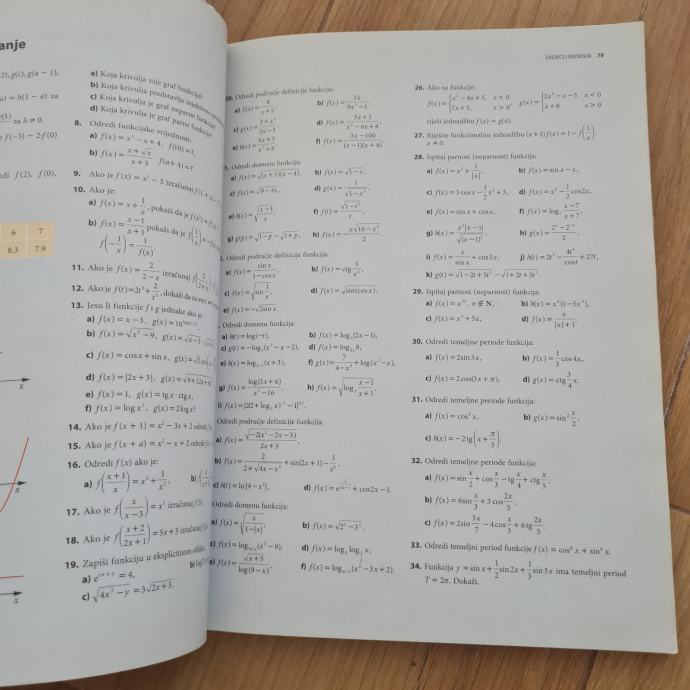 anje
2), g(x), g(a − 1),
a) = h(1 − a) za
za h ≠ 0.
e f(−3) − 2·f(0)
edi f(2), f(0),
6 7
8.3 7.9
x
x
a) Koja krivulja nije graf funkcije?
b) Koja krivulja predstavlja
c) Koja krivulja je graf neparne funkcije?
d) Koja krivulja je graf parne funkcije?
8. Odredi funkcijske vrijednosti:
a) f(x) = x² − x + 4, f(10) = ?,
b) f(x) = (x + √x)/(x + 3) f(a + 4) = ?
9. Ako je f(x) = x² − 3 izračunaj
10. Ako je:
a) f(x) = x + 1/x, pokaži da je
b) f(x) = (x − 1)/(x + 1) pokaži da je
f(−1/x) = 1/f(x).
11. Ako je f(x) = 2/(2 − x) izračunaj
12. Ako je f(t) = 2t² + 2/t², dokaži da za
13. Jesu li funkcije f i g jednake ako je:
a) f(x) = x − 3,
b) f(x) = √(x² − 9),
c) f(x) = cos x + sin x,
d) f(x) = |2x + 3|,
e) f(x) = 1, g(x) = tg x · ctg x,
f) f(x) = log x², g(x) = 2 log x?
14. Ako je f(x + 1) = x² − 3x + 2
15. Ako je f(x + a) = x² − x + 2
16. Odredi f(x) ako je:
a) f((x + 1)/x) = x² + 1/x²,
17. Ako je f(x/(x − 3)) = x² izračunaj f(5).
18. Ako je f((x + 2)/(2x + 1)) = 5x + 3 izračunaj
19. Zapiši funkciju u eksplicitnom obliku:
a) eˣ⁺⁴ʸ = 4,
c) √(4x² − y) = 3√(2x + 3).
ZADACI I RJEŠENJA 79
20. Odredi područje definicije funkcija:
a) f(x) = 4/(x + 5), b) f(x) = 3x/(9x² − 1),
c) g(x) = (3 + x²)/(2x − 3), d) f(x) = (3x + 1)/(x² − 6x + 8),
e) h(x) = (6x + 5)/(x³ + 8), f) f(x) = (3x − 100)/((x − 1)(x + 4))
Odredi domenu funkcija:
a) f(x) = √((x + 3)(x − 4)), b) f(x) = √(1 − x,)
c) f(x) = √(9 − 4x), d) g(x) = 1/√(1 − x²),
e) h(x) = √((x − 1)/x), f) f(t) = √(1 − t²)/t,
g) g(p) = √(1 − p) − √(1 + p), h) f(x) = −x√(16 − x²)/2
Odredi područje definicije funkcija:
a) f(x) = sin x/(1 − cos x) b) f(x) = ctg 1/x²,
c) f(x) = √(sin 1/x), d) f(x) = √(sin(cos x)),
e) f(x) = √(−2 sin x).
Odredi domenu funkcija:
a) h(t) = log(−t), b) f(x) = log₃(2x − 1),
e) h(x) = logₓ₋₁(x + 3), f) g(x) = 7/(4 − x²) + log(x² − x),
g) f(x) = log(3x + 6)/(x² − 16), h) f(x) = √(log₃ (x − 1)/(x + 1)),
Odredi područje definicije funkcija:
a) f(x) = √(−2(x² − 2x − 3))/(2x + 3),
c) h(t) = ln|4 − x²|,
Odredi domenu funkcija:
b) f(x) = √(2ˣ − 3ˣ),
d) f(x) = log₃ log₃ x,
e) f(x) = √(x + 3)/log(9 − x)
f) f(x) = logₓ₋₁(x² − 3x + 2).
26. Ako su funkcije:
f(x) = { x² − 4x + 5, x < 0 g(x) = { 2x² − x − 5 x < 0
7x + 3, x > 0 , x + 8 x > 0
riješi jednadžbu f(x) = g(x).
27. Riješite funkcionalnu jednadžbu (x + 1)f(x) = 1 − f(1/x)
x ≠ 0.
28. Ispitaj parnost (neparnost) funkcija:
a) f(x) = x² + 1/|x|, b) f(x) = sin x − x,
c) f(x) = 3 cos x − 1/2 x² + 3, d) f(x) = x² − 1/2 cos 2x,
e) f(x) = sin x + cos x, f) f(x) = log (x − 7)/(x + 7),
g) h(x) = x²|x − 1|/√((x − 1)²), h) g(x) = (2ˣ − 2⁻ˣ)/2,
i) f(x) = x/sin x + cos x, j) h(t) = 2t³ − 4t³/cos t + 27t,
k) g(t) = √(1 − 2t + 5t²) − √(1 + 2t + 5t²).
29. Ispitaj parnost (neparnost) funkcija:
a) f(x) = x²ⁿ, n ∉ N, b) h(x) = x⁴(1 − 5xⁿ),
c) f(x) = x³ + 5x, d) f(x) = x/(|x| + 1).
30. Odredi temeljne periode funkcija:
a) f(x) = 2 sin 3x, b) f(x) = 1/3 cos 4x,
c) f(x) = 2 cos(3x + π), d) g(x) = ctg 3/4 x.
31. Odredi temeljne periode funkcija:
a) f(x) = cos² x, b) g(x) = sin² x/2,
c) h(x) = −2 tg(x + π/3).
32. Odredi temeljne periode funkcija:
a) f(x) = sin x/2 + cos x/3 − tg x/4 + ctg x/5,
b) f(x) = 6 sin x/3 + 3 cos 2x/5,
c) f(x) = 2 sin 3x/7 − 4 cos x/3 + 6 tg 2x/5.
33. Odredi temeljni period funkcije f(x) = cos⁴ x + sin⁴ x.
34. Funkcija y = sin x + 1/2 sin 2x + 1/3 sin 3x ima temeljni period
T = 2π. Dokaži.